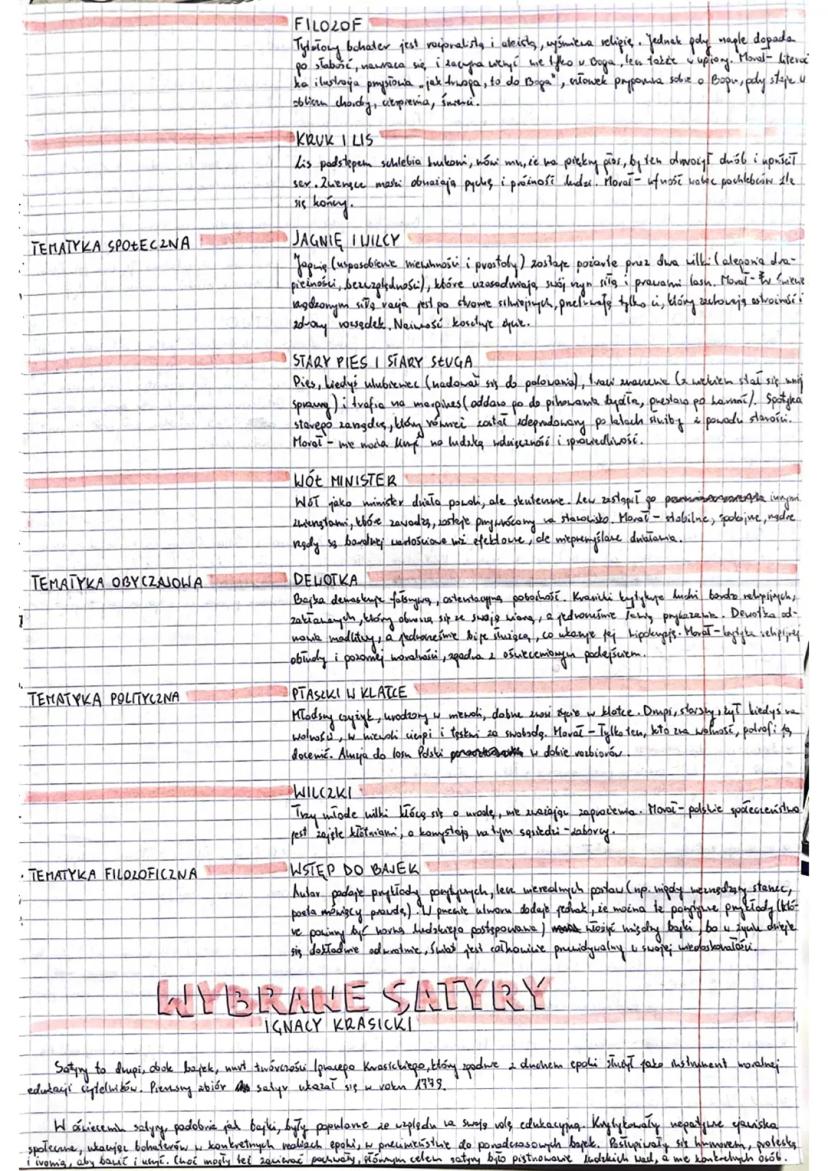 FILOZOF
Tytułowy bohater jest racjonalistą i ateistą, wyśmiewa religię. Jednak gdy nagle dopada
go słabość, nawraca się i zaczyna wierzyć nie tylko w Boga, lecz także w upiory. Morał - literac
ka ilustracja przysłowia „jak trwoga, to do Boga”, człowiek przypomina sobie o Bogu, gdy staje w
obliczu choroby, cierpienia, śmierci.
KRUK I LIS
Lis podstępem schlebia krukowi, mówi mu, że ma piękny głos, by ten otworzył dziób i upuścił
ser. Zwierzęce maski obnażają pychę i próżność ludzi. Morał - ufność wobec pochlebców źle
się kończy.
TEMATYKA SPOŁECZNA
JAGNIĘ I WILCY
Jagnię (uosobienie niewinności i prostoty) zostaje pożarte przez dwa wilki (alegoria dra-
pieżności, bezwzględności), które uzasadniają swój czyn siłą i prawami lasu. Morał - W świecie
rządzonym siłą racja jest po stronie silniejszych, przetrwają tylko ci, który zachowają ostrożność i
zdrowy rozsądek. Naiwność kosztuje życie.
STARY PIES I STARY SŁUGA
Pies, kiedyś ulubieniec (nadawał się do polowania), traci znaczenie (z wiekiem stał się mniej
sprawny) i trafia na margines (oddano go do pilnowania bydła, przestano go karmić). Spotyka
starego zarządcę, który również został zdegradowany po latach służby z powodu starości.
Morał - nie można liczyć na ludzką wdzięczność i sprawiedliwość.
WÓŁ MINISTER
Wół jako minister działa powoli, ale skutecznie. Lew zastąpił go innymi
zwierzętami, które zawodzą, zostaje przywrócony na stanowisko. Morał - stabilne, spokojne, mądre
rządy są bardziej wartościowe niż efektowne, ale nieprzemyślane działania.
TEMATYKA OBYCZAJOWA
DEWOTKA
Bajka demaskuje fałszywą, ostentacyjną pobożność. Krasicki krytykuje ludzi bardzo religijnych,
zakłamanych, który obnoszą się ze swoją wiarą, a jednocześnie łamią przykazania. Dewotka od-
mawia modlitwy, a jednocześnie bije służącą, co ukazuje jej hipokryzję. Morał - krytyka religijnej
obłudy i pozornej moralności, zgodna z oświeceniowym podejściem.
TEMATYKA POLITYCZNA
PTASZKI W KLATCE
Młodszy czyżyk, urodzony w niewoli, dobrze znosi życie w klatce. Drugi, starszy, żył kiedyś na
wolności, w niewoli cierpi i tęskni za swobodą. Morał - Tylko ten, kto zna wolność, potrafi ją
docenić. Aluzja do losu Polski w dobie rozbiorów.
WILCZKI
Trzy młode wilki kłócą się o urodę, nie zważając zagrożenia. Morał - polskie społeczeństwo
jest zajęte kłótniami, a korzystają na tym sąsiedzi - zaborcy.
TEMATYKA FILOZOFICZNA
WSTĘP DO BAJEK
Autor podaje przykłady pozytywnych, lecz nierealnych postaw (np. nigdy niezrzędzący starzec,
poeta mówiący prawdę). W puencie utworu dodaje jednak, że można te pozytywne przykłady (któ-
re powinny być normą ludzkiego postępowania) włożyć między bajki, bo w życiu dzieje
się dokładnie odwrotnie, świat jest całkowicie przewidywalny w swojej niedoskonałości.
WYBRANE SATYRY
IGNACY KRASICKI
Satyry to drugi, obok bajek, nurt twórczości Ignacego Krasickiego, który zgodnie z duchem epoki służył jako instrument moralnej
edukacji czytelników. Pierwszy zbiór satyr ukazał się w roku 1779.
W oświeceniu satyry, podobnie jak bajki, były popularne ze względu na swoją rolę edukacyjną. Krytykowały negatywne zjawiska
społeczne, ukazując bohaterów w konkretnych realiach epoki, w przeciwieństwie do ponadczasowych bajek. Posługiwały się humorem, groteską
i ironią, aby bawić i uczyć. Choć mogły też zawierać pochwały, głównym celem satyry było piętnowanie ludzkich wad, a nie konkretnych osób.